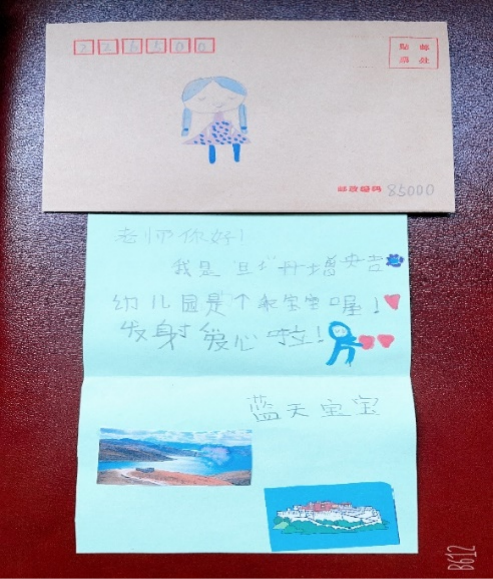 226500
贴 邮
票 处
邮政编码 85000
老师你好！
我是 旦增央吉
幼儿园是个 宝宝喔！
发射爱心啦！
蓝天宝宝
B612